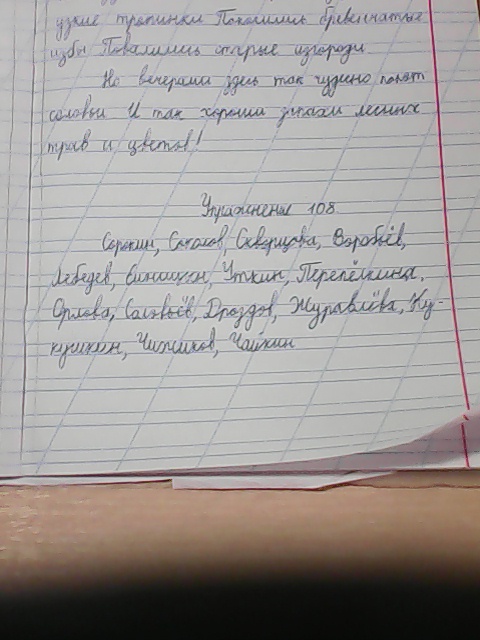 узкие тропинки Покосились бревенчатые
избы Повалились старые изгороди.
Но вечерами здесь так чудно поют
соловьи И так хороши запахи лесных
трав и цветов!
Упражнение 108.
Сорокин, Соколов, Скворцова, Воробьёв,
Лебедев, Синицын, Уткин, Перепёлкина,
Орлова, Соловьёв, Дроздов, Журавлёва, Ку-
кушкин, Чижиков, Чайкин